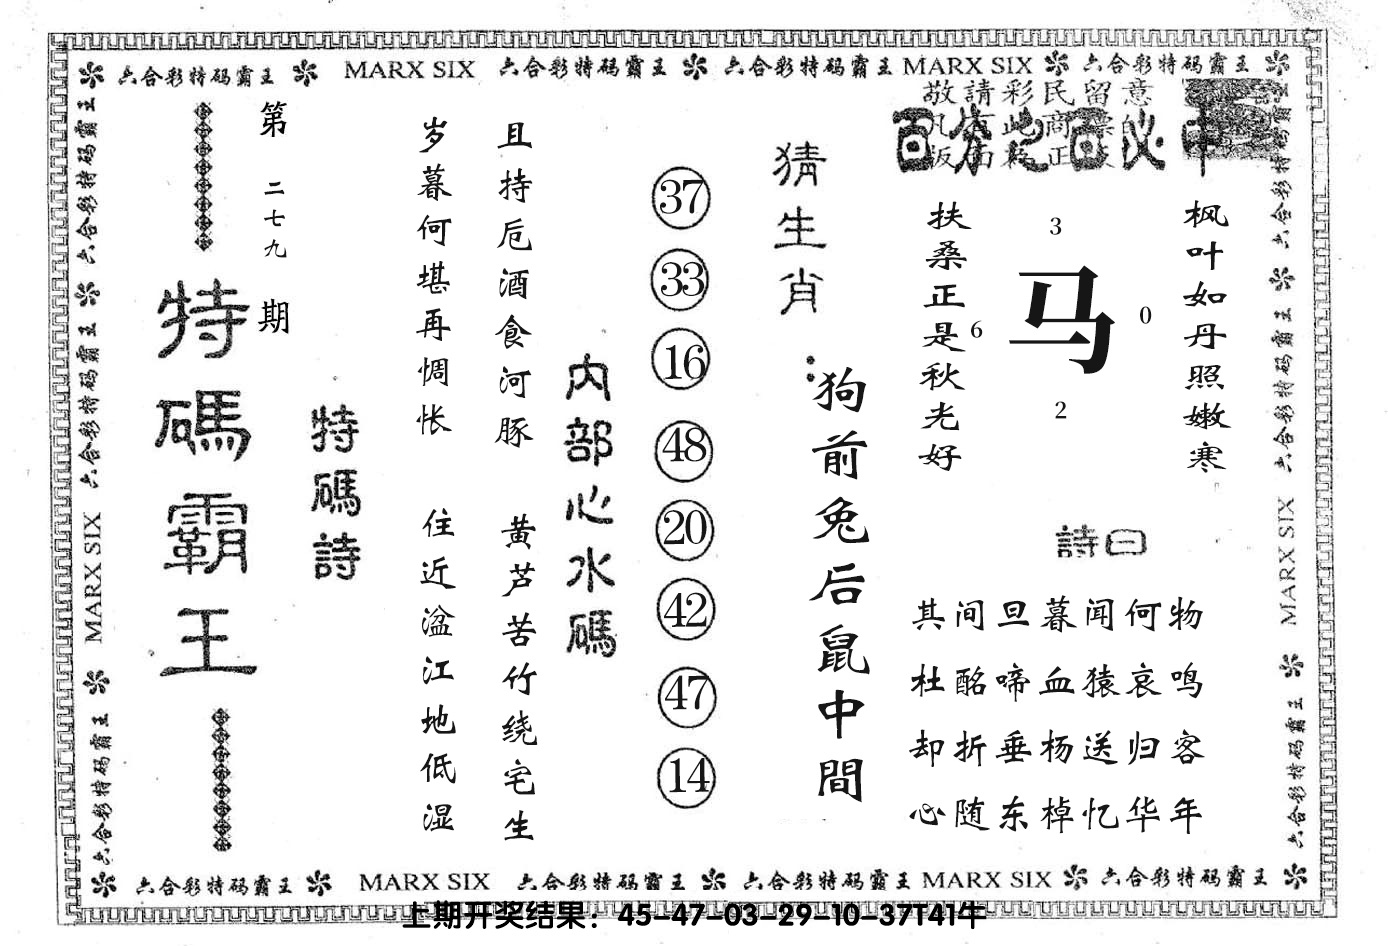 六合彩特码霸王 MARX SIX 六合彩特码霸王 六合彩特码霸王 MARX SIX 六合彩特码霸王
敬請彩民留意
百分之百必中
第二七九期
特碼霸王
特碼詩
岁暮何堪再惆怅
且持卮酒食河豚
住近湓江地低湿
黄芦苦竹绕宅生
内部心水碼
37
33
16
48
20
42
47
14
猜生肖：
狗前兔后鼠中間
扶桑正是秋光好
3
6
马
0
2
枫叶如丹照嫩寒
詩曰
其间旦暮闻何物
杜酩啼血猿哀鸣
却折垂杨送归客
心随东棹忆华年
六合彩特码霸王 六合彩特码霸王 MARX SIX 六合彩特码霸王
六合彩特码霸王 六合彩特码霸王 MARX SIX 六合彩特码霸王
六合彩特码霸王 MARX SIX 六合彩特码霸王 六合彩特码霸王 MARX SIX 六合彩特码霸王
上期开奖结果：45-47-03-29-10-37T41牛